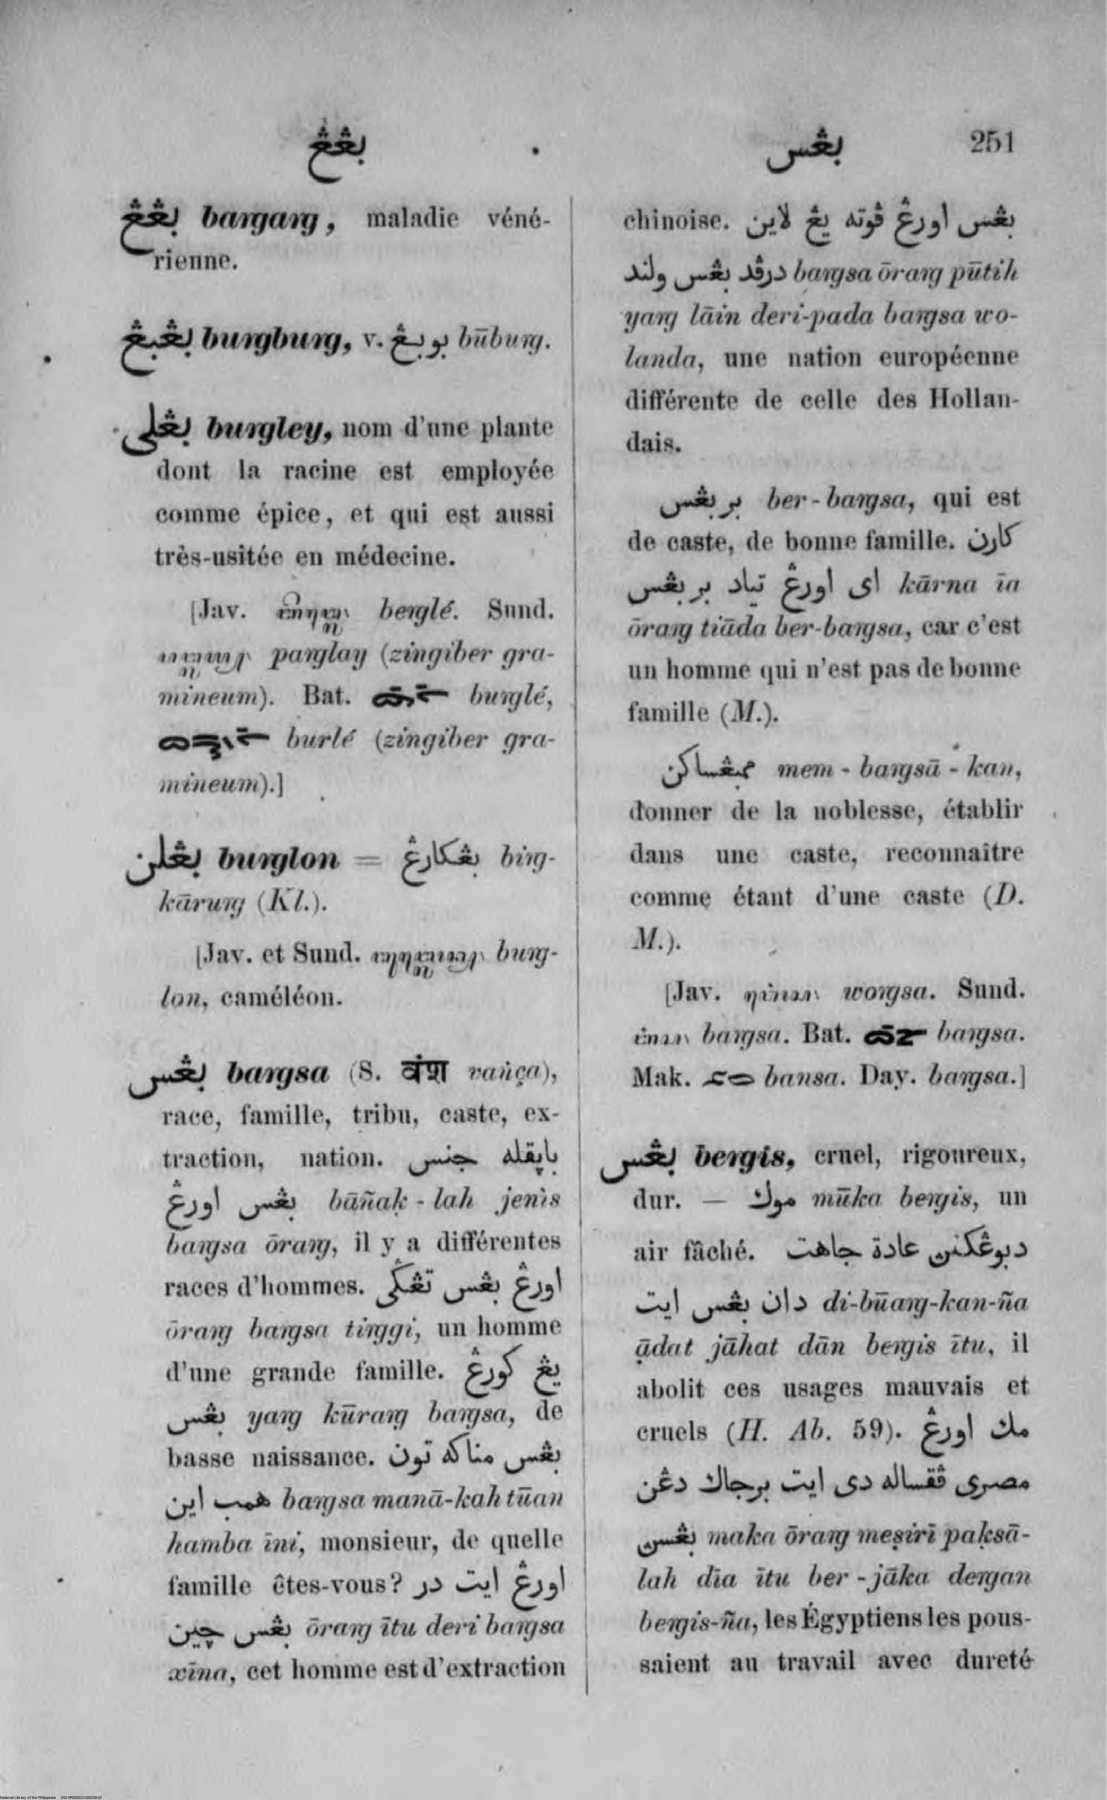 بڠڠ
بڠس 251
بڠڠ bangang, maladie véné-
rienne.
بڠبڠ bungbung, v. بوبڠ būbung.
بڠلى bungley, nom d'une plante
dont la racine est employée
comme épice, et qui est aussi
très-usitée en médecine.
[Jav. benglé. Sund.
panglay (zingiber gra-
mineum). Bat. bunglé,
burlé (zingiber gra-
mineum).]
بڠلن bunglon = بڠكارڠ bing-
kārung (Kl.).
[Jav. et Sund. bung-
lon, caméléon.
بڠس bangsa (S. वंश vaṅça),
race, famille, tribu, caste, ex-
traction, nation. باپقله جنس
بڠس اورڠ bāñaḳ-lah jenis
bangsa ōrang, il y a différentes
races d'hommes. اورڠ بڠس تڠݢى
ōrang bangsa tinggi, un homme
d'une grande famille. يڠ كورڠ
بڠس yang kūrang bangsa, de
basse naissance. بڠس مناكه تون
همب اين bangsa manā-kah tūan
hamba īni, monsieur, de quelle
famille êtes-vous? اورڠ ايت در
بڠس چين ōrang ītu deri bangsa
xīna, cet homme est d'extraction
chinoise. بڠس اورڠ ڤوته يڠ لاين
درڤد بڠس ولند bangsa ōrang pūtih
yang lāin deri-pada bangsa wo-
landa, une nation européenne
différente de celle des Hollan-
dais.
بربڠس ber-bangsa, qui est
de caste, de bonne famille. كارن
اى اورڠ تياد بربڠس kārna īa
ōrang tiāda ber-bangsa, car c'est
un homme qui n'est pas de bonne
famille (M.).
ممبڠساكن mem-bangsā-kan,
donner de la noblesse, établir
dans une caste, reconnaître
comme étant d'une caste (D.
M.).
[Jav. wongsa. Sund.
bangsa. Bat. bangsa.
Mak. bansa. Day. bangsa.]
بڠس bengis, cruel, rigoureux,
dur. — موك mūka bengis, un
air fâché. دبوڠكنڽ عادة جاهت
دان بڠس ايت di-būang-kan-ña
ạ̄dat jāhat dān bengis ītu, il
abolit ces usages mauvais et
cruels (H. Ab. 59). مك اورڠ
مصرى ڤقساله دى ايت برجاك دڠن
بڠسڽ maka ōrang meṣirī paḳsā-
lah dīa ītu ber-jāka dengan
bengis-ña, les Égyptiens les pous-
saient au travail avec dureté